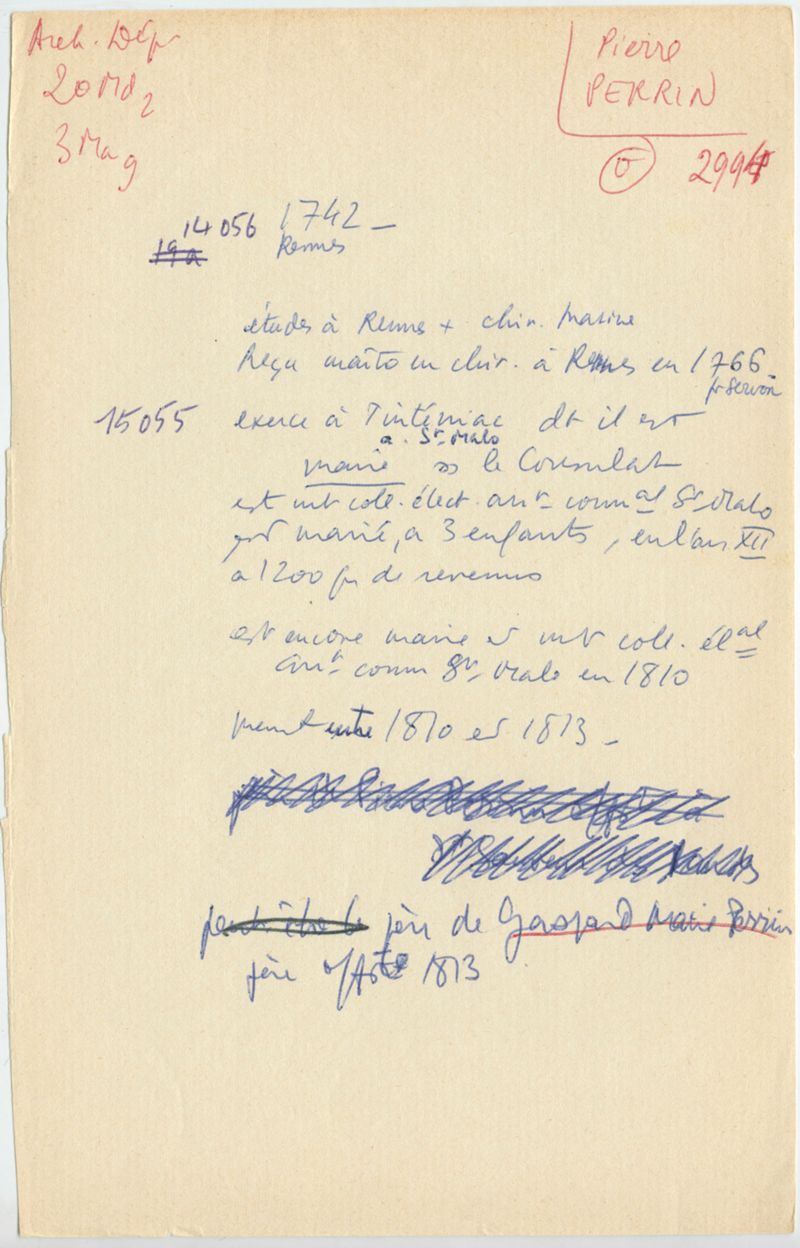 Arch. Dép
20 Md 2
3 Ma 9
Pierre
PERRIN
2994
14056 1742 _
19a
Rennes
études à Rennes + chir. Marine
Reçu maître en chir. à Rennes en 1766_
pr Servon
15055 exerce à Tinténiac dt il est
a. St Malo
maire ss le Consulat
est mb coll. élect. arrt commal St Malo
est marié, a 3 enfants, en l'an XII
a 1200 fr de revenus
est encore maire et mb coll. élal
arrt comm St Malo en 1810
meurt entre 1810 et 1813 _
peut-être le père de Gaspard Marie Perrin
père off 1813